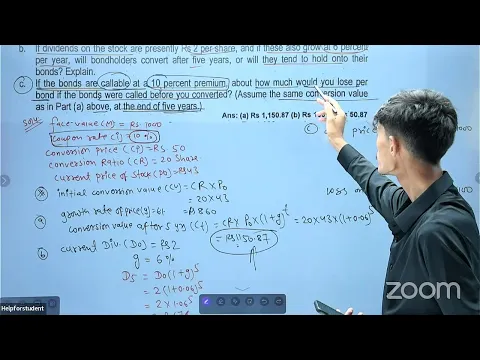 b. If dividends on the stock are presently Rs 2 per-share, and if these also grow at 6 percent
per year, will bondholders convert after five years, or will they tend to hold onto their
bonds? Explain.
c. If the bonds are callable at a 10 percent premium, about how much would you lose per
bond if the bonds were called before you converted? (Assume the same conversion value
as in Part (a) above, at the end of five years.)
Ans: (a) Rs 1,150.87 (b) Rs 50.87
Soln.
Face value (M) = RS 1000
Coupon rate (i) = 10%
Conversion price (CP) = RS 50
Conversion Ratio (CR) = 20 share
current price of stock (P0) = RS43
initial conversion value (CV) = CR X P0
= 20X43
= RS 860
(a) growth rate of price (g) = 6%
conversion value after 5 yr (Ct) = CR X P0 X (1+g)^t = 20X43X(1+0.06)^5
= RS1150.87
(b) current Div. (D0) = RS2
g = 6%
D5 = D0(1+g)^5
= 2(1+0.06)^5
= 2X1.06^5
(c) price
loss
zoom
Helpforstudent